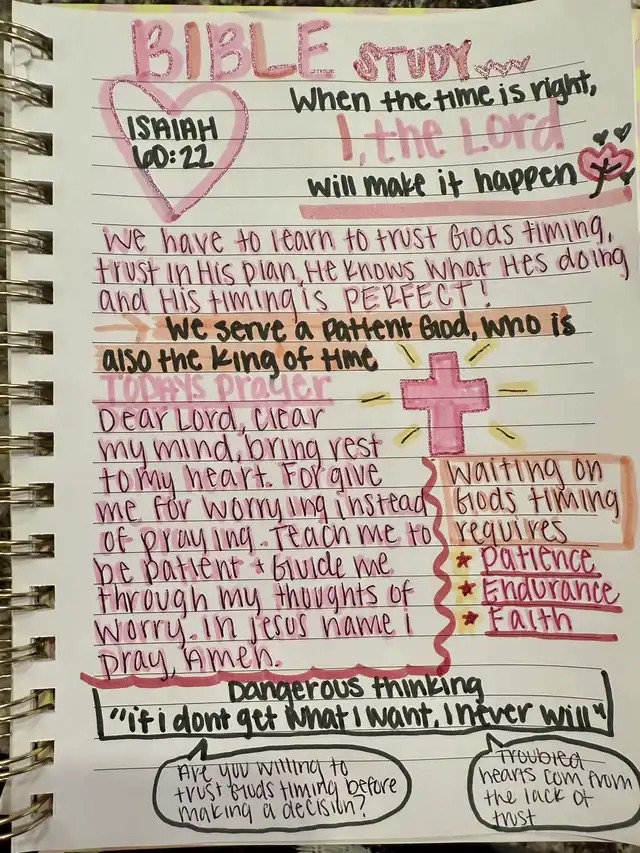 BIBLE STUDY
ISAIAH
60:22
When the time is right,
I, the Lord
will make it happen
We have to learn to trust Gods timing,
trust in His plan, He knows what Hes doing
and His timing is PERFECT!
We serve a patient God, who is
also the King of time
TODAYS prayer
Dear Lord, clear
my mind, bring rest
to my heart. Forgive
me for worrying instead
of praying. Teach me to
be patient + Guide me
through my thoughts of
worry. In Jesus name I
pray, Amen.
Waiting on
Gods timing
requires
Patience
Endurance
Faith
Dangerous thinking
"if i dont get what I want, I never will"
Are you willing to
trust Gods timing before
making a decision?
Troubled
hearts com from
the lack of
trust